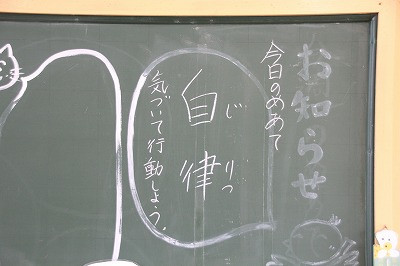 お知らせ
今日のめあて
自律
じりつ
気づいて行動しよう。